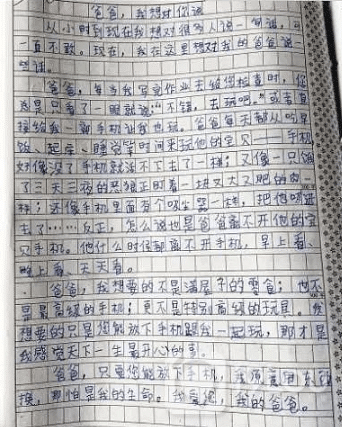 爸爸，我想对你说
从小时到现在我想对很多人说一句话，可
一直不敢。现在，我在这里想对我的爸爸说一
句话。
爸爸，每当我写完作业去给您检查时，您
总是只看了一眼就说：“不错，去玩吧。”或者直
接给我一部手机让我去玩。爸爸每天都从吃早
饭、起床、睡觉等时间来玩他的宝贝——手机，
好像没了手机就活不下去了一样；又像一只饿
了三天三夜的恶狼正盯着一块又大又肥的肉一
样；还像手机里面有个吸尘器一样，把他吸进
去了……反正，怎么说也是爸爸离不开他的宝
贝手机。他什么时候都离不开手机，早上看、
晚上看、天天看。
爸爸，我想要的不是满屋子的零食；也不
是最高级的手机；更不是特别高级的玩具。我
想要的只是您能放下手机跟我一起玩，那才是
我感觉天下一生最开心的事。
爸爸，只要您能放下手机，我愿意用东西
换，哪怕是我的生命。我爱您，我的爸爸。